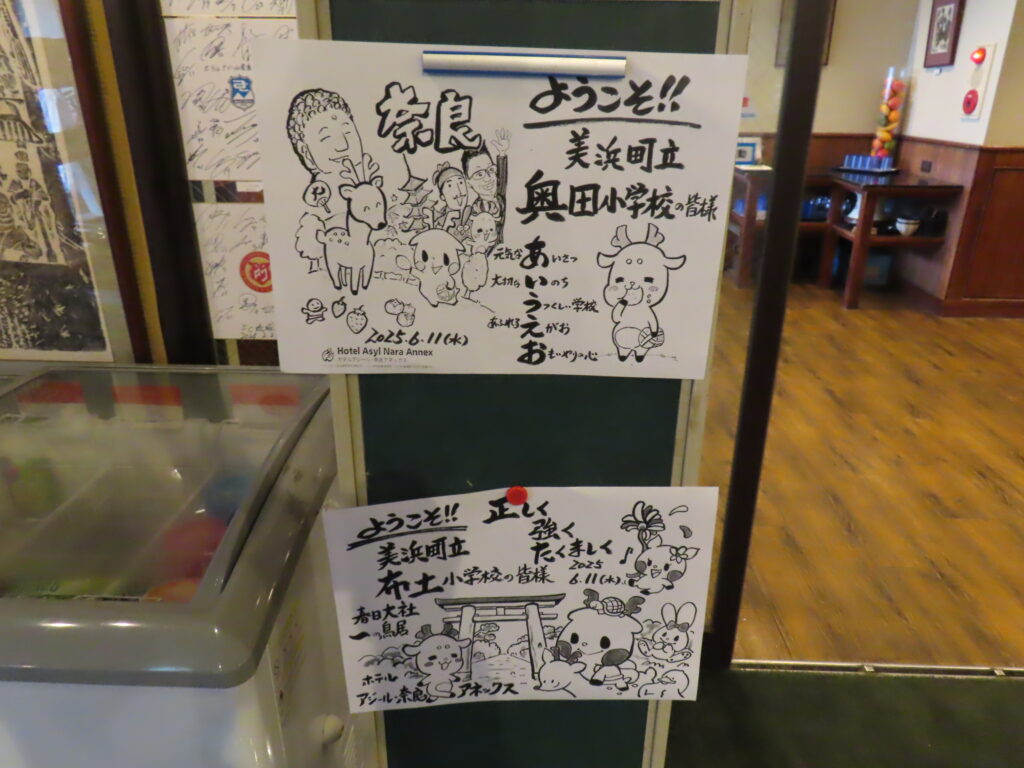 奈良
ようこそ!!
美浜町立
奥田小学校の皆様
元気なあいさつ
大切ないのち
うつくしい学校
あふれるえがお
おもいやりの心
2025.6.11(水)
Hotel Asyl Nara Annex
ホテルアジール・奈良アネックス
ようこそ!!
美浜町立
布土小学校の皆様
正しく
強く
たくましく
2025
6.11(水)
春日大社
一の鳥居
ホテル
アジール・奈良アネックス